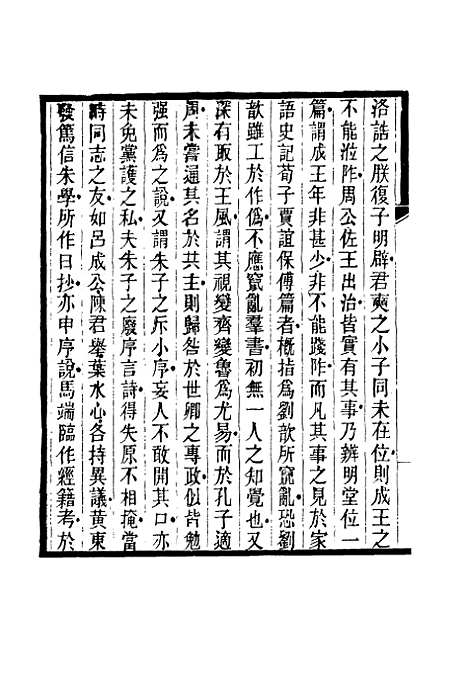 洛誥之朕復子明辟君奭之小子同未在位則成王之
不能涖阼周公佐王出治皆實有其事乃辨明堂位一
篇謂成王年非甚少非不能踐阼而凡其事之見於家
語史記荀子賈誼保傅篇者概指為劉歆所竄亂恐劉
歆雖工於作偽不應竄亂羣書初無一人之知覺也又
深有取於王風謂其視變齊變魯為尤易而於孔子適
周未嘗通其名於共主則歸咎於世卿之專政似皆勉
强而為之說又謂朱子之斥小序妄人不敢開其口亦
未免黨護之私夫朱子之廢序言詩得失原不相掩當
時同志之友如呂成公陳君舉葉水心各持異議黃東
發篤信朱學所作日抄亦申序說馬端臨作經籍考於